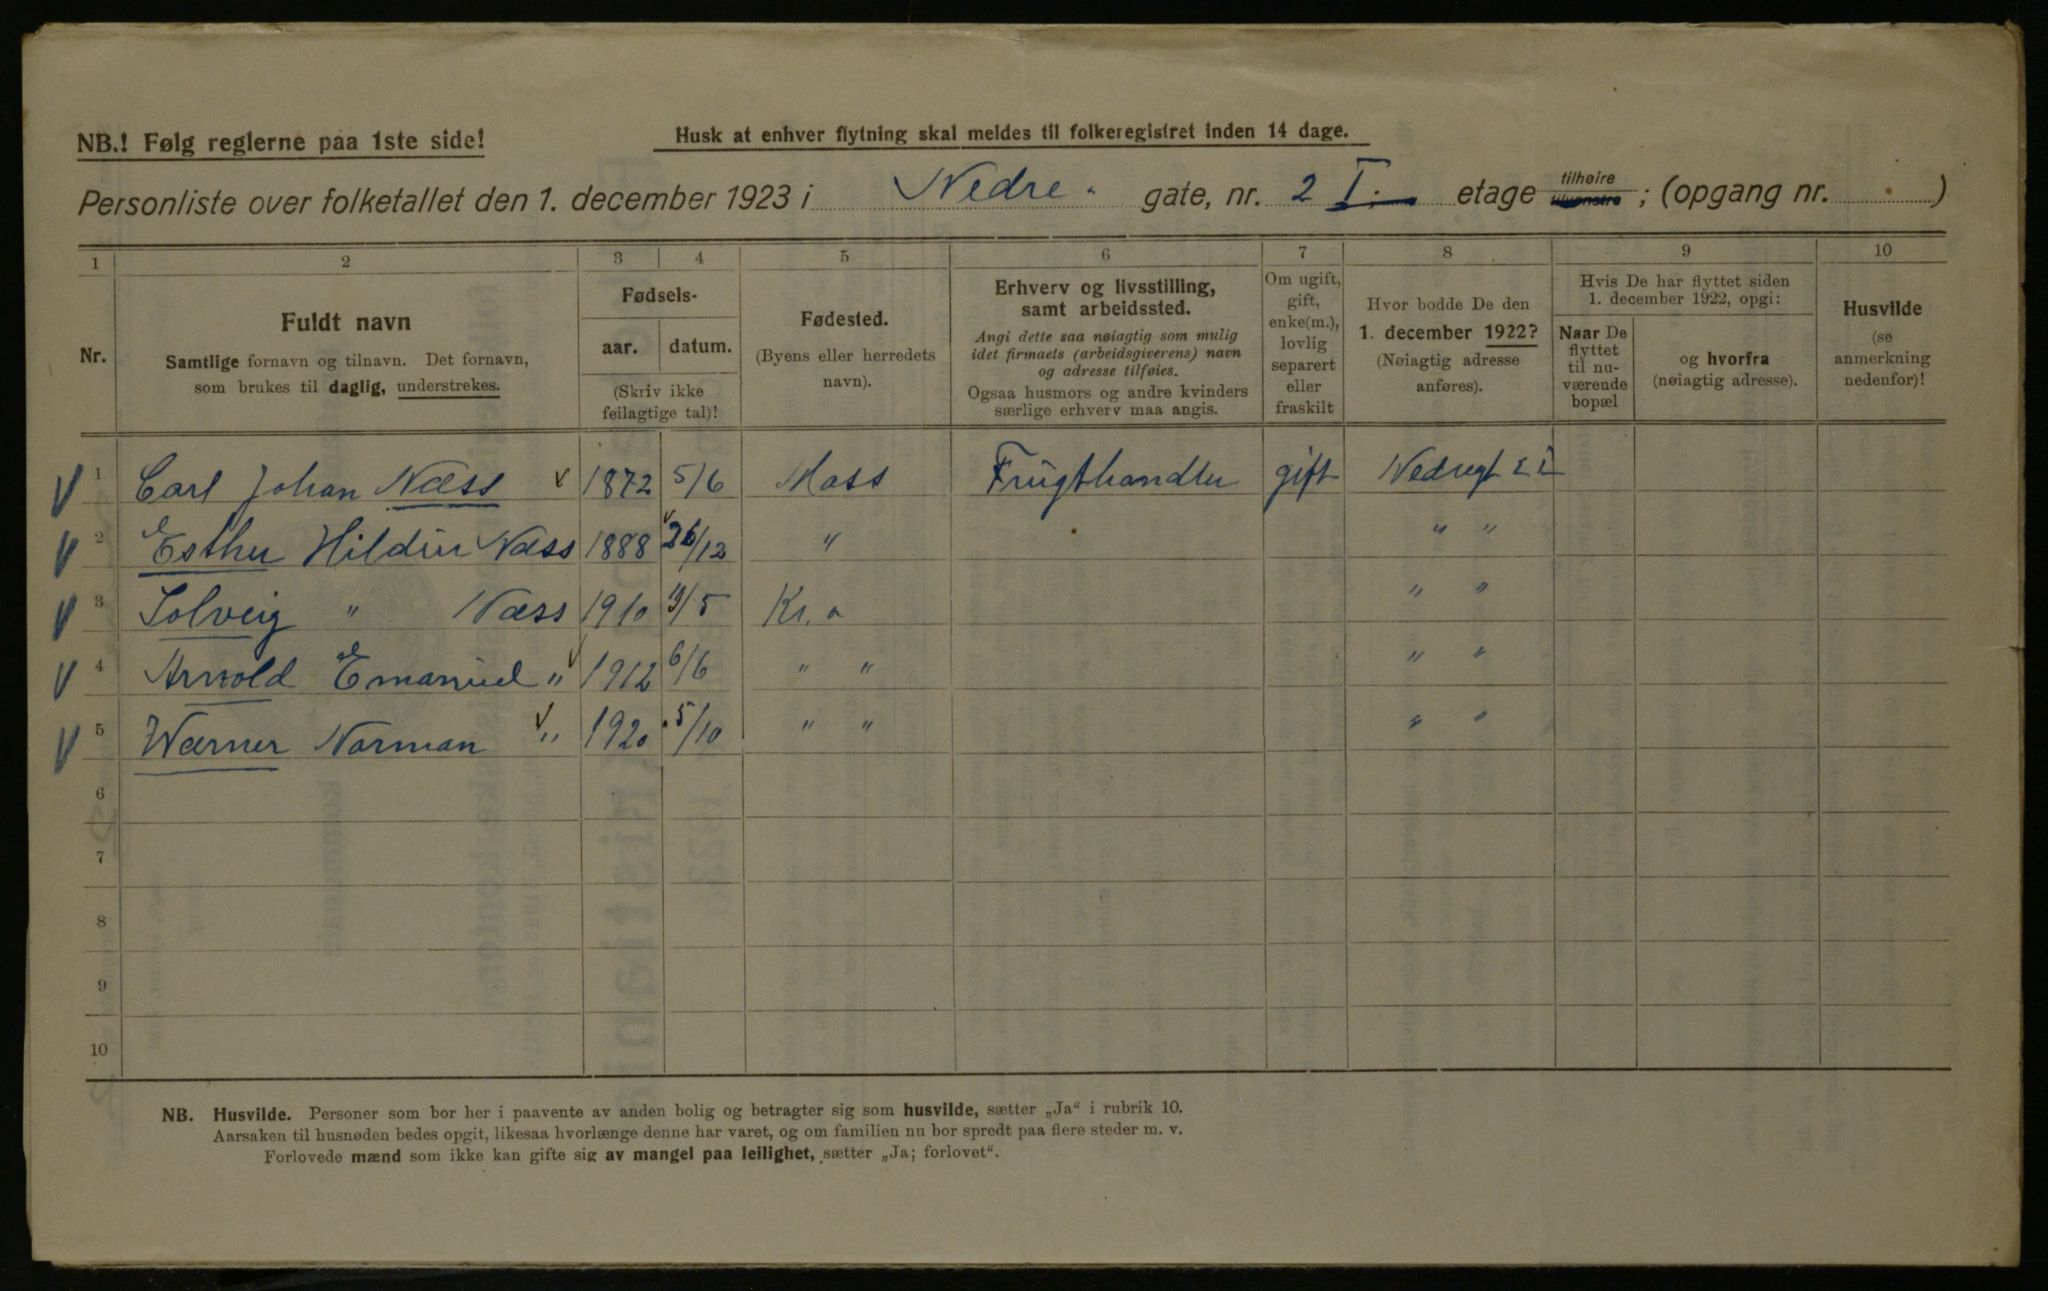 NB.! Følg reglerne paa 1ste side!
Husk at enhver flytning skal meldes til folkeregistret inden 14 dage.
Personliste over folketallet den 1. december 1923 i Nedre gate, nr. 2 I. etage tilhøire tilvenstre ; (opgang nr. )
1 2 3 4 5 6 7 8 9 10
Nr.
Fuldt navn
Samtlige fornavn og tilnavn. Det fornavn,
som brukes til daglig, understrekes.
Fødsels-
aar. datum.
(Skriv ikke
feilagtige tal)!
Fødested.
(Byens eller herredets
navn).
Erhverv og livsstilling,
samt arbeidssted.
Angi dette saa nøiagtig som mulig
idet firmaets (arbeidsgiverens) navn
og adresse tilføies.
Ogsaa husmors og andre kvinders
særlige erhverv maa angis.
Om ugift,
gift,
enke(m.),
lovlig
separert
eller
fraskilt
Hvor bodde De den
1. december 1922?
(Nøiagtig adresse
anføres).
Hvis De har flyttet siden
1. december 1922, opgi:
Naar De
flyttet
til nu-
værende
bopæl
og hvorfra
(nøiagtig adresse).
Husvilde
(se
anmerkning
nedenfor)!
1 Carl Johan Næss 1872 5/6 Moss Frugthandler gift Nedregt 2 I
2 Esther Hildur Næss 1888 26/12 " " "
3 Solveig " Næss 1910 /5 Kr. a " "
4 Arnold Emanuel " 1912 6/6 " " " "
5 Wærner Norman " 1920 5/10 " " " "
6
7
8
9
10
NB. Husvilde. Personer som bor her i paavente av anden bolig og betragter sig som husvilde, sætter „Ja“ i rubrik 10.
Aarsaken til husnøden bedes opgit, likesaa hvorlænge denne har varet, og om familien nu bor spredt paa flere steder m. v.
Forlovede mænd som ikke kan gifte sig av mangel paa leilighet, sætter „Ja; forlovet“.